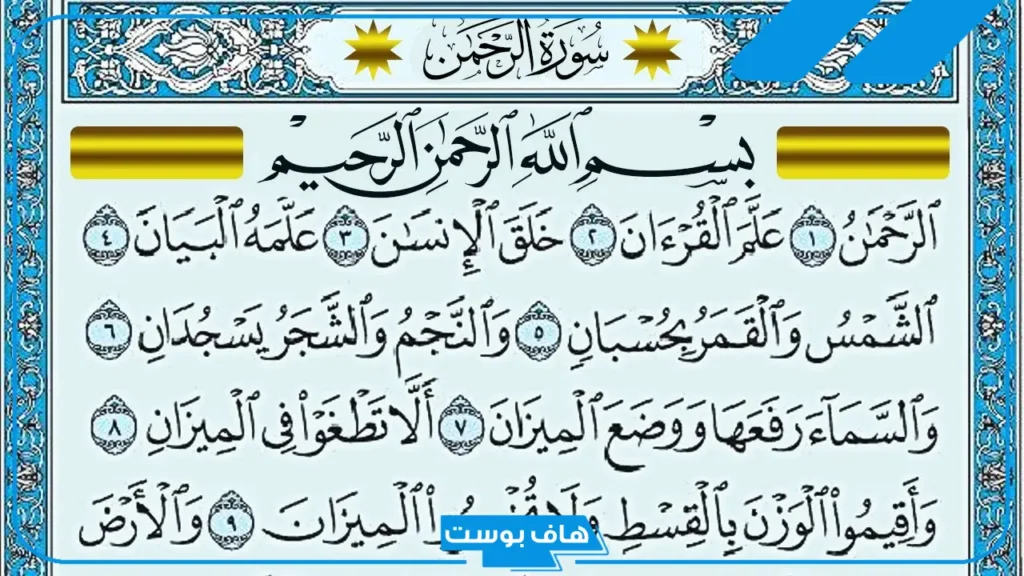 سُورَةُ الرَّحْمَٰن
بِسْمِ ٱللَّهِ ٱلرَّحْمَٰنِ ٱلرَّحِيمِ
ٱلرَّحْمَٰنُ ١ عَلَّمَ ٱلْقُرْءَانَ ٢ خَلَقَ ٱلْإِنسَٰنَ ٣ عَلَّمَهُ ٱلْبَيَانَ ٤
ٱلشَّمْسُ وَٱلْقَمَرُ بِحُسْبَانٍ ٥ وَٱلنَّجْمُ وَٱلشَّجَرُ يَسْجُدَانِ ٦
وَٱلسَّمَآءَ رَفَعَهَا وَوَضَعَ ٱلْمِيزَانَ ٧ أَلَّا تَطْغَوْا۟ فِى ٱلْمِيزَانِ ٨
وَأَقِيمُوا۟ ٱلْوَزْنَ بِٱلْقِسْطِ وَلَا ٱلْمِيزَانَ ٩ وَٱلْأَرْضَ
هاف بوست